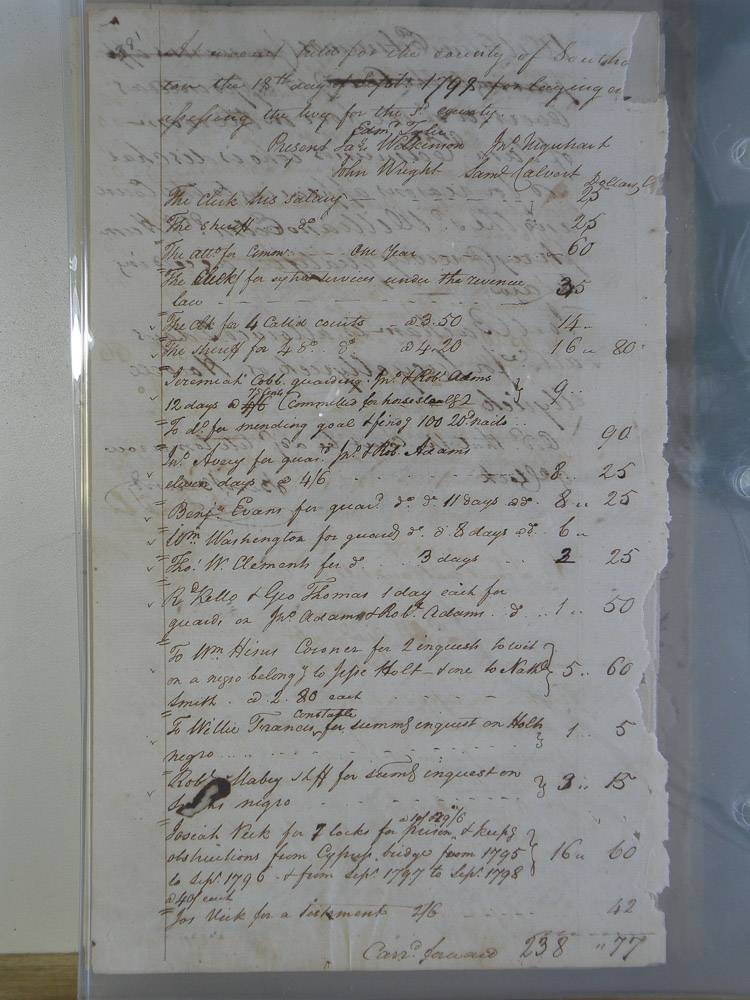 At a court held for the county of Southa
ton the 18th day of Septr. 1798 for laying &
assessing the levy for the sd. county
Edmd. Tyler
Present Jas. Wilkinson Jno. Urquhart
John Wright Saml Calvert
Dollars C
The Clerk his salary 25
The Sheriff do. 25
The atto. for Comm. One Year 60
The Clerk for extra services under the revenue
law 35
The Clk for 4 Call'd courts @ 3.50 14
The Sheriff for 4 do. do. @ 4.20 16 80
Jeremiah Cobb guarding Jno. & Robt Adams
75 Cents
12 days @ 4/6 (Committed for horse stealg) 9
To do. for mending goal & findg 100 20d nails
90
Jno. Avery for guardg Jno. & Robt Adams
eleven days @ 4/6 8 25
Benja. Evans for guardg do. do. 11 days @ do. 8 25
Wm. Washington for guardg do. do. 8 days @ do. 6
Tho. W. Clements for do. 3 days 2 25
Rd. Kello & Geo Thomas 1 day each for
guardg on Jno. Adams & Robt. Adams do. 1 50
To Wm Hines Coroner for 2 inquests to wit
on a negro belongg to Jesse Holt & one to Nathl
Smith @ 2.80 each 5 60
Constable
To Willie Francis for summg inquest on Holts
negro 1 5
Robt. Mabry shff for summg inquest on
negro 3 15
Josiah Vick for 7 locks for prison & keepg
obstructions from Cypress bridge from 1795
to Sept. 1796 & from Sept. 1797 to Sept. 1798 16 60
@ 40/ each
Jos Vick for a 2/6 42
Carrd. forward 238 77